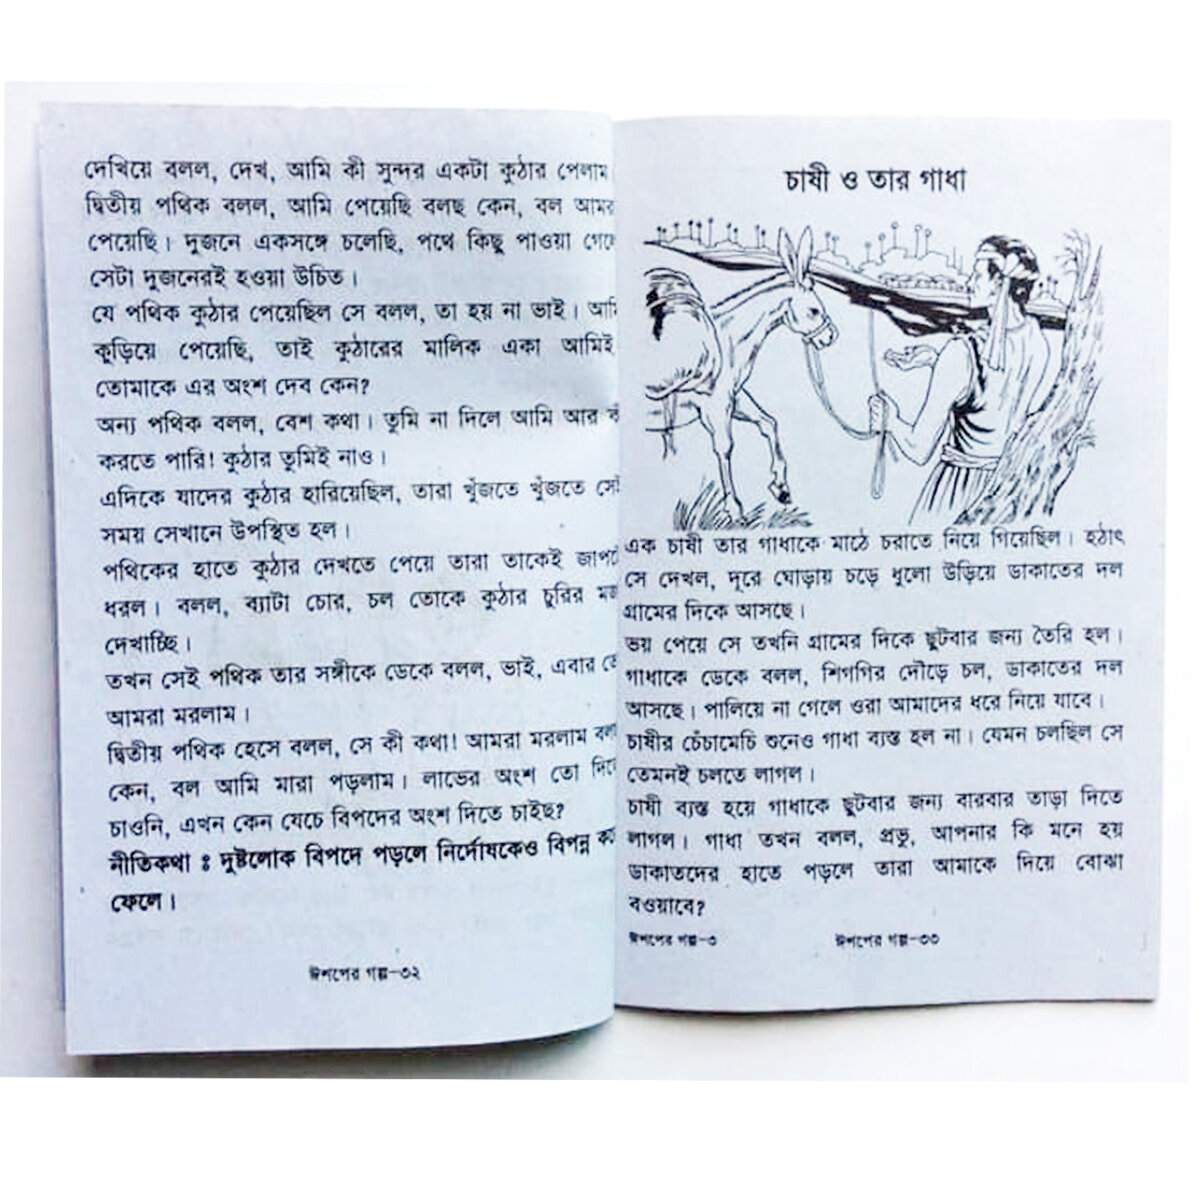 দেখিয়ে বলল, দেখ, আমি কী সুন্দর একটা কুঠার পেলাম
দ্বিতীয় পথিক বলল, আমি পেয়েছি বলছ কেন, বল আমরা
পেয়েছি। দুজনে একসঙ্গে চলেছি, পথে কিছু পাওয়া গেলে
সেটা দুজনেরই হওয়া উচিত।
যে পথিক কুঠার পেয়েছিল সে বলল, তা হয় না ভাই। আমি
কুড়িয়ে পেয়েছি, তাই কুঠারের মালিক একা আমিই
তোমাকে এর অংশ দেব কেন?
অন্য পথিক বলল, বেশ কথা। তুমি না দিলে আমি আর
করতে পারি! কুঠার তুমিই নাও।
এদিকে যাদের কুঠার হারিয়েছিল, তারা খুঁজতে খুঁজতে সেই
সময় সেখানে উপস্থিত হল।
পথিকের হাতে কুঠার দেখতে পেয়ে তারা তাকেই জাপটে
ধরল। বলল, ব্যাটা চোর, চল তোকে কুঠার চুরির মজা
দেখাচ্ছি।
তখন সেই পথিক তার সঙ্গীকে ডেকে বলল, ভাই, এবার তো
আমরা মরলাম।
দ্বিতীয় পথিক হেসে বলল, সে কী কথা! আমরা মরলাম বলছ
কেন, বল আমি মারা পড়লাম। লাভের অংশ তো দিতে
চাওনি, এখন কেন যেচে বিপদের অংশ দিতে চাইছ?
নীতিকথা ঃ দুষ্টলোক বিপদে পড়লে নির্দোষকেও বিপন্ন করে
ফেলে।
ঈশপের গল্প-৩২
চাষী ও তার গাধা
এক চাষী তার গাধাকে মাঠে চরাতে নিয়ে গিয়েছিল। হঠাৎ
সে দেখল, দূরে ঘোড়ায় চড়ে ধুলো উড়িয়ে ডাকাতের দল
গ্রামের দিকে আসছে।
ভয় পেয়ে সে তখনি গ্রামের দিকে ছুটবার জন্য তৈরি হল।
গাধাকে ডেকে বলল, শিগগির দৌড়ে চল, ডাকাতের দল
আসছে। পালিয়ে না গেলে ওরা আমাদের ধরে নিয়ে যাবে।
চাষীর চেঁচামেচি শুনেও গাধা ব্যস্ত হল না। যেমন চলছিল সে
তেমনই চলতে লাগল।
চাষী ব্যস্ত হয়ে গাধাকে ছুটবার জন্য বারবার তাড়া দিতে
লাগল। গাধা তখন বলল, প্রভু, আপনার কি মনে হয়
ডাকাতদের হাতে পড়লে তারা আমাকে দিয়ে বোঝা
বওয়াবে?
ঈশপের গল্প-৩
ঈশপের গল্প-৩৩